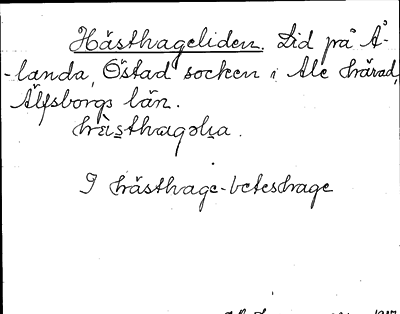 Hästhageliden. Lid på Å-
-landa, Östad socken i Ale härad,
Älfsborgs län.
I hästhage-beteshage